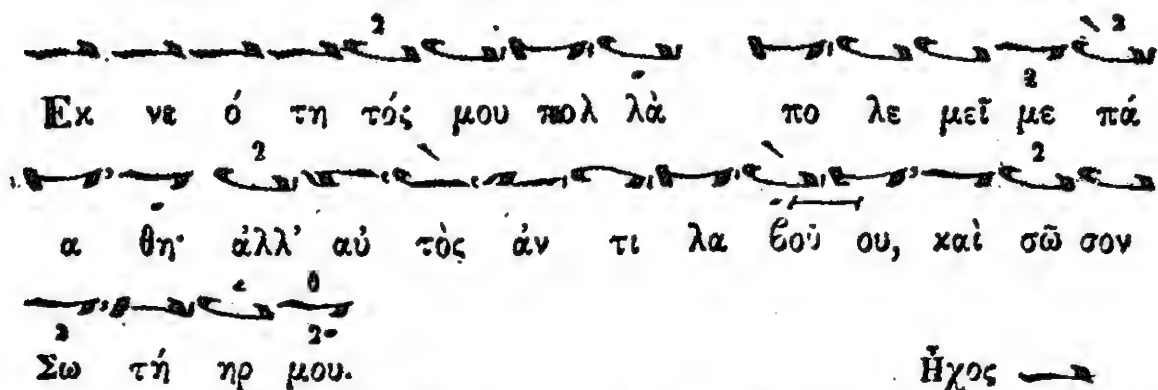 Ἐκ νε ό τη τός μου πολ λὰ πο λε μεῖ με πά
α θη· ἀλλ' αὐ τὸς ἀν τι λα βοῦ ου, καὶ σῶ σον
Σω τή ηρ μου. Ἦχος